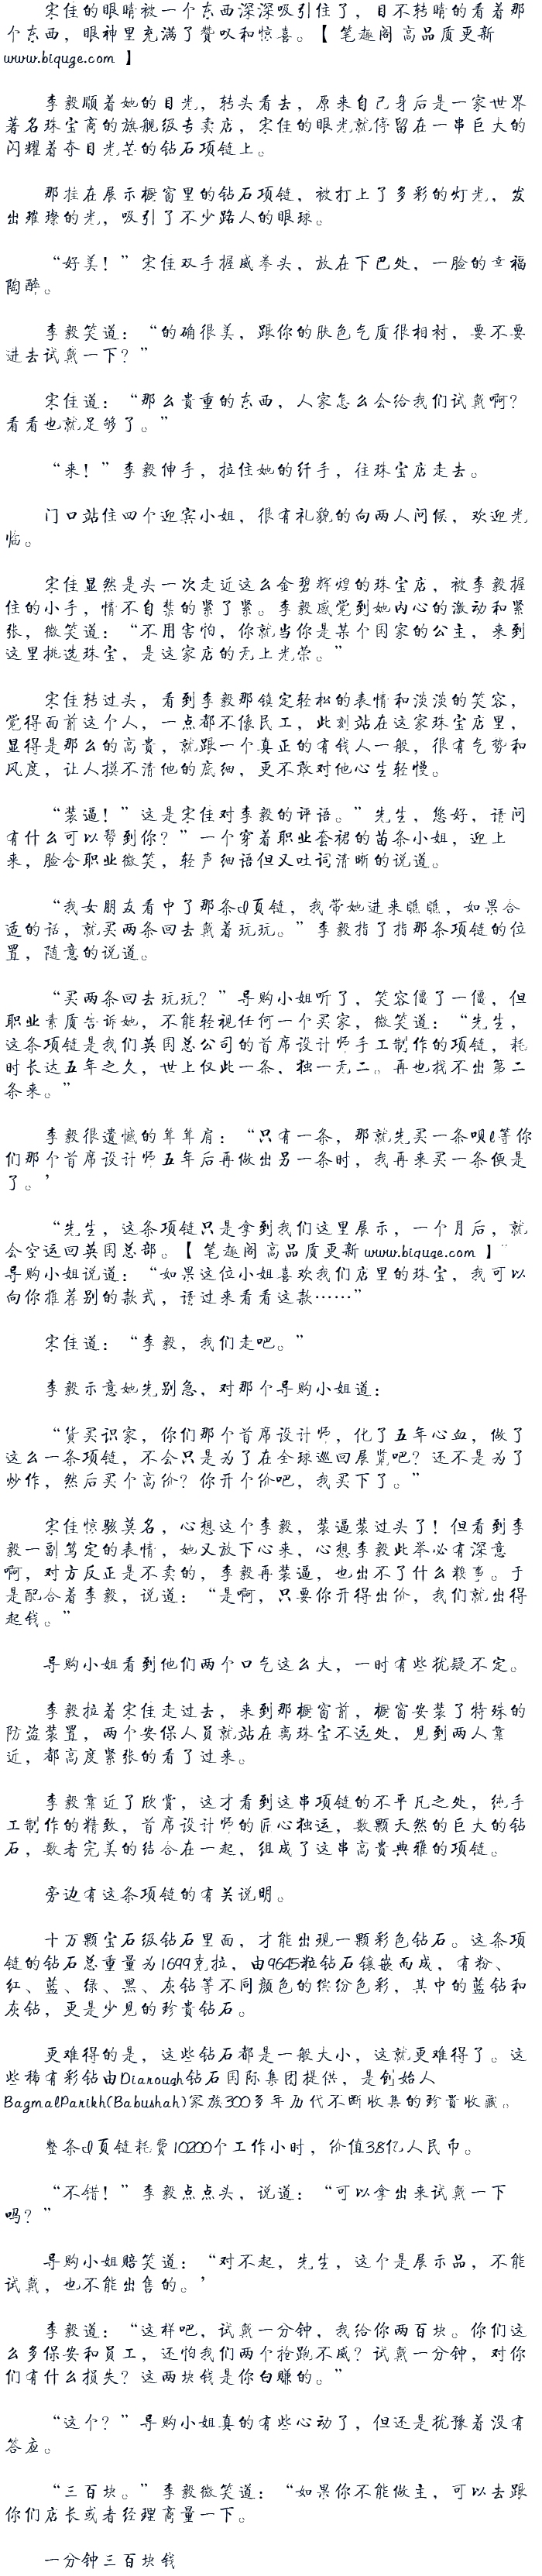 宋佳的眼睛被一个东西深深吸引住了，目不转睛的看着那
个东西，眼神里充满了赞叹和惊喜。【 笔趣阁 高品质更新
www.biquge.com 】
李毅顺着她的目光，转头看去，原来自己身后是一家世界
著名珠宝商的旗舰级专卖店，宋佳的眼光就停留在一串巨大的
闪耀着夺目光芒的钻石项链上。
那挂在展示橱窗里的钻石项链，被打上了多彩的灯光，发
出璀璨的光，吸引了不少路人的眼球。
“好美！”宋佳双手握成拳头，放在下巴处，一脸的幸福
陶醉。
李毅笑道：“的确很美，跟你的肤色气质很相衬，要不要
进去试戴一下？”
宋佳道：“那么贵重的东西，人家怎么会给我们试戴啊？
看看也就足够了。”
“来！”李毅伸手，拉住她的纤手，往珠宝店走去。
门口站住四个迎宾小姐，很有礼貌的向两人问候，欢迎光
临。
宋佳显然是头一次走近这么金碧辉煌的珠宝店，被李毅握
住的小手，情不自禁的紧了紧。李毅感觉到她内心的激动和紧
张，微笑道：“不用害怕，你就当你是某个国家的公主，来到
这里挑选珠宝，是这家店的无上光荣。”
宋佳转过头，看到李毅那镇定轻松的表情和淡淡的笑容，
觉得面前这个人，一点都不像民工，此刻站在这家珠宝店里，
显得是那么的高贵，就跟一个真正的有钱人一般，很有气势和
风度，让人摸不清他的底细，更不敢对他心生轻慢。
“装逼！”这是宋佳对李毅的评语。”先生，您好，请问
有什么可以帮到你？”一个穿着职业套裙的苗条小姐，迎上
来，脸含职业微笑，轻声细语但又吐词清晰的说道。
“我女朋友看中了那条d页链，我带她进来瞧瞧，如果合
适的话，就买两条回去戴着玩玩。”李毅指了指那条项链的位
置，随意的说道。
“买两条回去玩玩？”导购小姐听了，笑容僵了一僵，但
职业素质告诉她，不能轻视任何一个买家，微笑道：“先生，
这条项链是我们英国总公司的首席设计师手工制作的项链，耗
时长达五年之久，世上仅此一条，独一无二。再也找不出第二
条来。”
李毅很遗憾的耸耸肩：“只有一条，那就先买一条呗l等你
们那个首席设计师五年后再做出另一条时，我再来买一条便是
了。’
“先生，这条项链只是拿到我们这里展示，一个月后，就
会空运回英国总部。【 笔趣阁 高品质更新 www.biquge.com 】”
导购小姐说道：“如果这位小姐喜欢我们店里的珠宝，我可以
向你推荐别的款式，请过来看看这款……”
宋佳道：“李毅，我们走吧。”
李毅示意她先别急，对那个导购小姐道：
“货买识家，你们那个首席设计师，化了五年心血，做了
这么一条项链，不会只是为了在全球巡回展览吧？还不是为了
炒作，然后买个高价？你开个价吧，我买下了。”
宋佳惊骇莫名，心想这个李毅，装逼装过头了！但看到李
毅一副笃定的表情，她又放下心来，心想李毅此举必有深意
啊，对方反正是不卖的，李毅再装逼，也出不了什么糗事。于
是配合着李毅，说道：“是啊，只要你开得出价，我们就出得
起钱。”
导购小姐看到他们两个口气这么大，一时有些犹疑不定。
李毅拉着宋佳走过去，来到那橱窗前，橱窗安装了特殊的
防盗装置，两个安保人员就站在离珠宝不远处，见到两人靠
近，都高度紧张的看了过来。
李毅靠近了欣赏，这才看到这串项链的不平凡之处，纯手
工制作的精致，首席设计师的匠心独运，数颗天然的巨大的钻
石，数者完美的结合在一起，组成了这串高贵典雅的项链。
旁边有这条项链的有关说明。
十万颗宝石级钻石里面，才能出现一颗彩色钻石。这条项
链的钻石总重量为1699克拉，由9645粒钻石镶嵌而成，有粉、
红、蓝、绿、黑、灰钻等不同颜色的缤纷色彩，其中的蓝钻和
灰钻，更是少见的珍贵钻石。
更难得的是，这些钻石都是一般大小，这就更难得了。这
些稀有彩钻由Diarough钻石国际集团提供，是创始人
BagmalParikh(Babushah)家族300多年历代不断收集的珍贵收藏。
整条d页链耗费10200个工作小时，价值3.8亿人民币。
“不错！”李毅点点头，说道：“可以拿出来试戴一下
吗？”
导购小姐赔笑道：“对不起，先生，这个是展示品，不能
试戴，也不能出售的。’
李毅道：“这样吧，试戴一分钟，我给你两百块。你们这
么多保安和员工，还怕我们两个抢跑不成？试戴一分钟，对你
们有什么损失？这两块钱是你白赚的。”
“这个？”导购小姐真的有些心动了，但还是犹豫着没有
答应。
“三百块。”李毅微笑道：“如果你不能做主，可以去跟
你们店长或者经理商量一下。
一分钟三百块钱